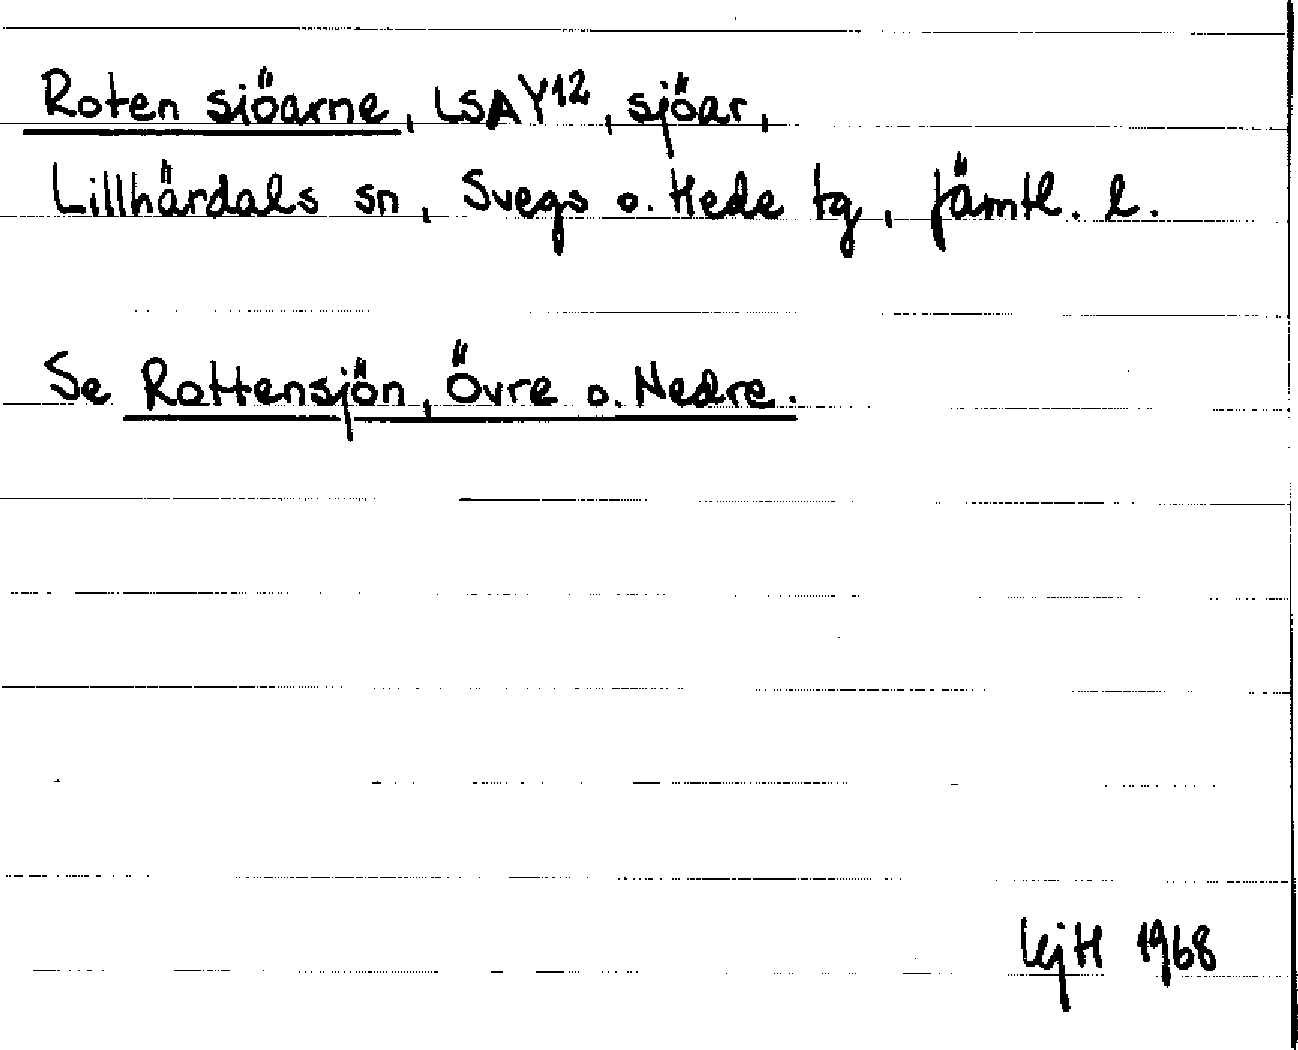 Roten siöarne, LSA Y12, sjöar,
Lillhärdals sn, Svegs o. Hede tg, Jämtl. l.
Se Rottensjön, Övre o. Nedre.
KjH 1968